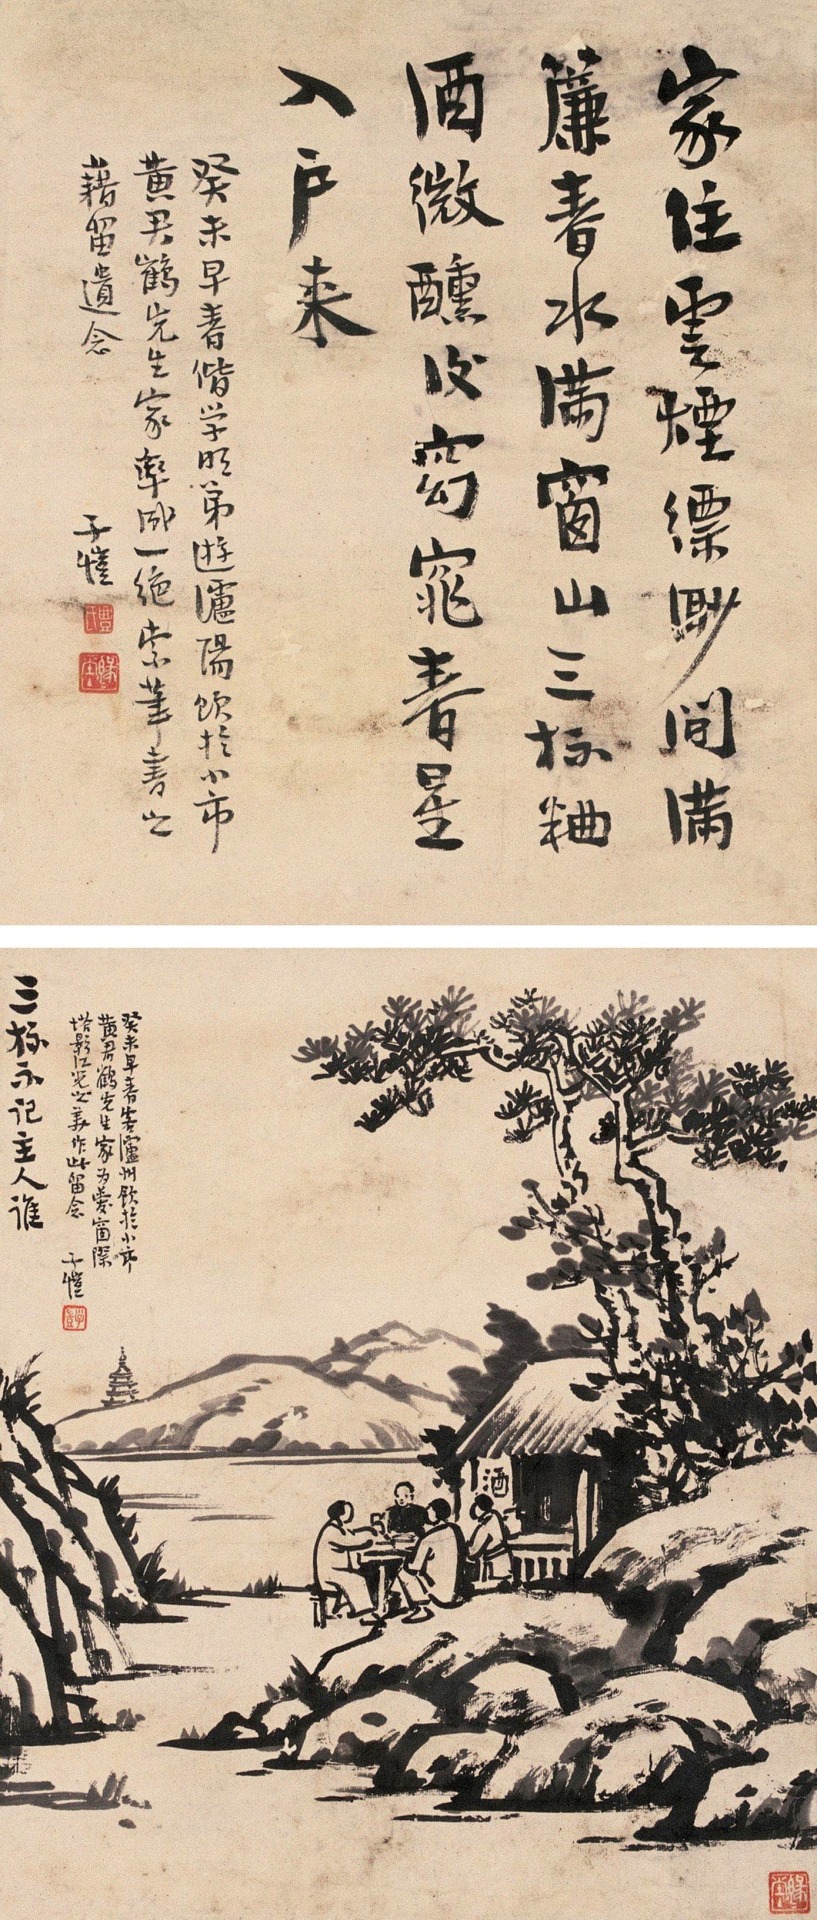 家住雲煙縹緲間滿
簾春水滿窗山三杯麯
酒微醺後窈窕春星
入戶来
癸未早春偕学明弟遊瀘陽飲於小市
黄君鶴先生家率成一絕索筆書之
藉留遺念
子愷
豐氏
酒
癸未早春客瀘州飲於小市
黄君鶴先生家為愛窗際
塔影江光之美作此留念
子愷
三杯不記主人誰